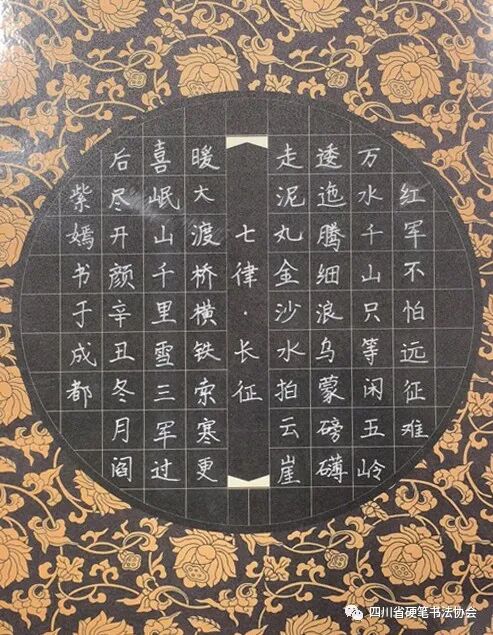 红军不怕远征难
万水千山只等闲五岭
逶迤腾细浪乌蒙磅礴
走泥丸金沙水拍云崖
七律·长征
暖大渡桥横铁索寒更
喜岷山千里雪三军过
后尽开颜辛丑冬月阎
紫嫣书于成都
四川省硬笔书法协会